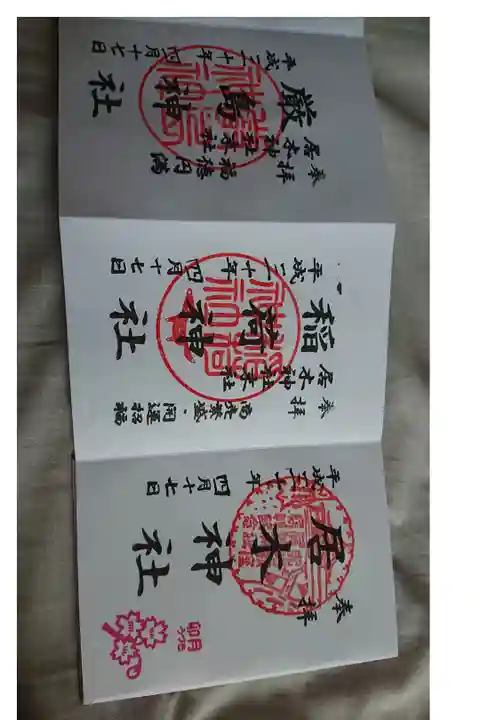 奉拝
居木神社
平成三十年四月十七日
卯月
うづき
奉拝
商売繁盛・開運招福
居木神社末社
稲荷神社
平成三十年四月十七日
奉拝
福徳円満
居木神社末社
厳島神社
平成三十年四月十七日